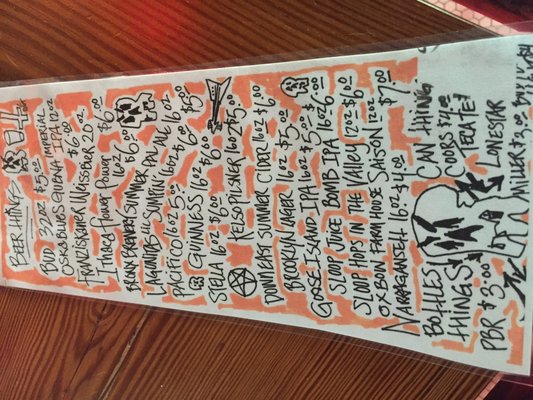 BEER THINGS
BUD 32oz $5.00
OSKAR BLUES GUBNA IMPERIAL IPA 12oz $6.00
FRANZISKANER WEISSBIER 20oz
ITHACA FLOWER POWER 16oz $6
BRONX BREWERY SUMMER PALE ALE 16oz $6.00
LAGUNITAS LIL SUMPIN 16oz $5
PACIFICO 16oz 5.00
GUINNESS 16oz $6.00
STELLA 16oz $6.00
KELSO PILSNER 16oz 5.00
DOWNEAST SUMMER CIDER 16oz $6.00
BROOKLYN LAGER 16oz $5.00
GOOSE ISLAND IPA 16oz $5.00
SLOOP JUICE BOMB IPA 16oz
SLOOP HOPS IN THE VALLEY 12oz $6.00
OXBOW FARMHOUSE SAISON 12oz $7.00
NARAGANSETT 16oz $4.00
BOTTLES THINGS
CAN THING
PBR $3.00
COORS $4.00
TECATE
LONESTAR
MILLER $3.00